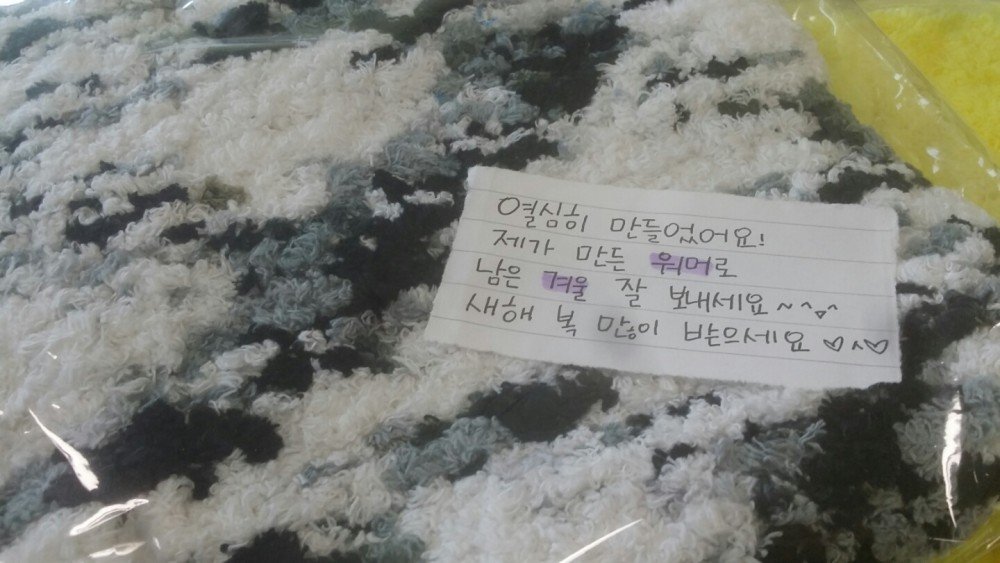 열심히 만들었어요!
제가 만든 워머로
남은 겨울 잘 보내세요~^^
새해 복 많이 받으세요♡~♡